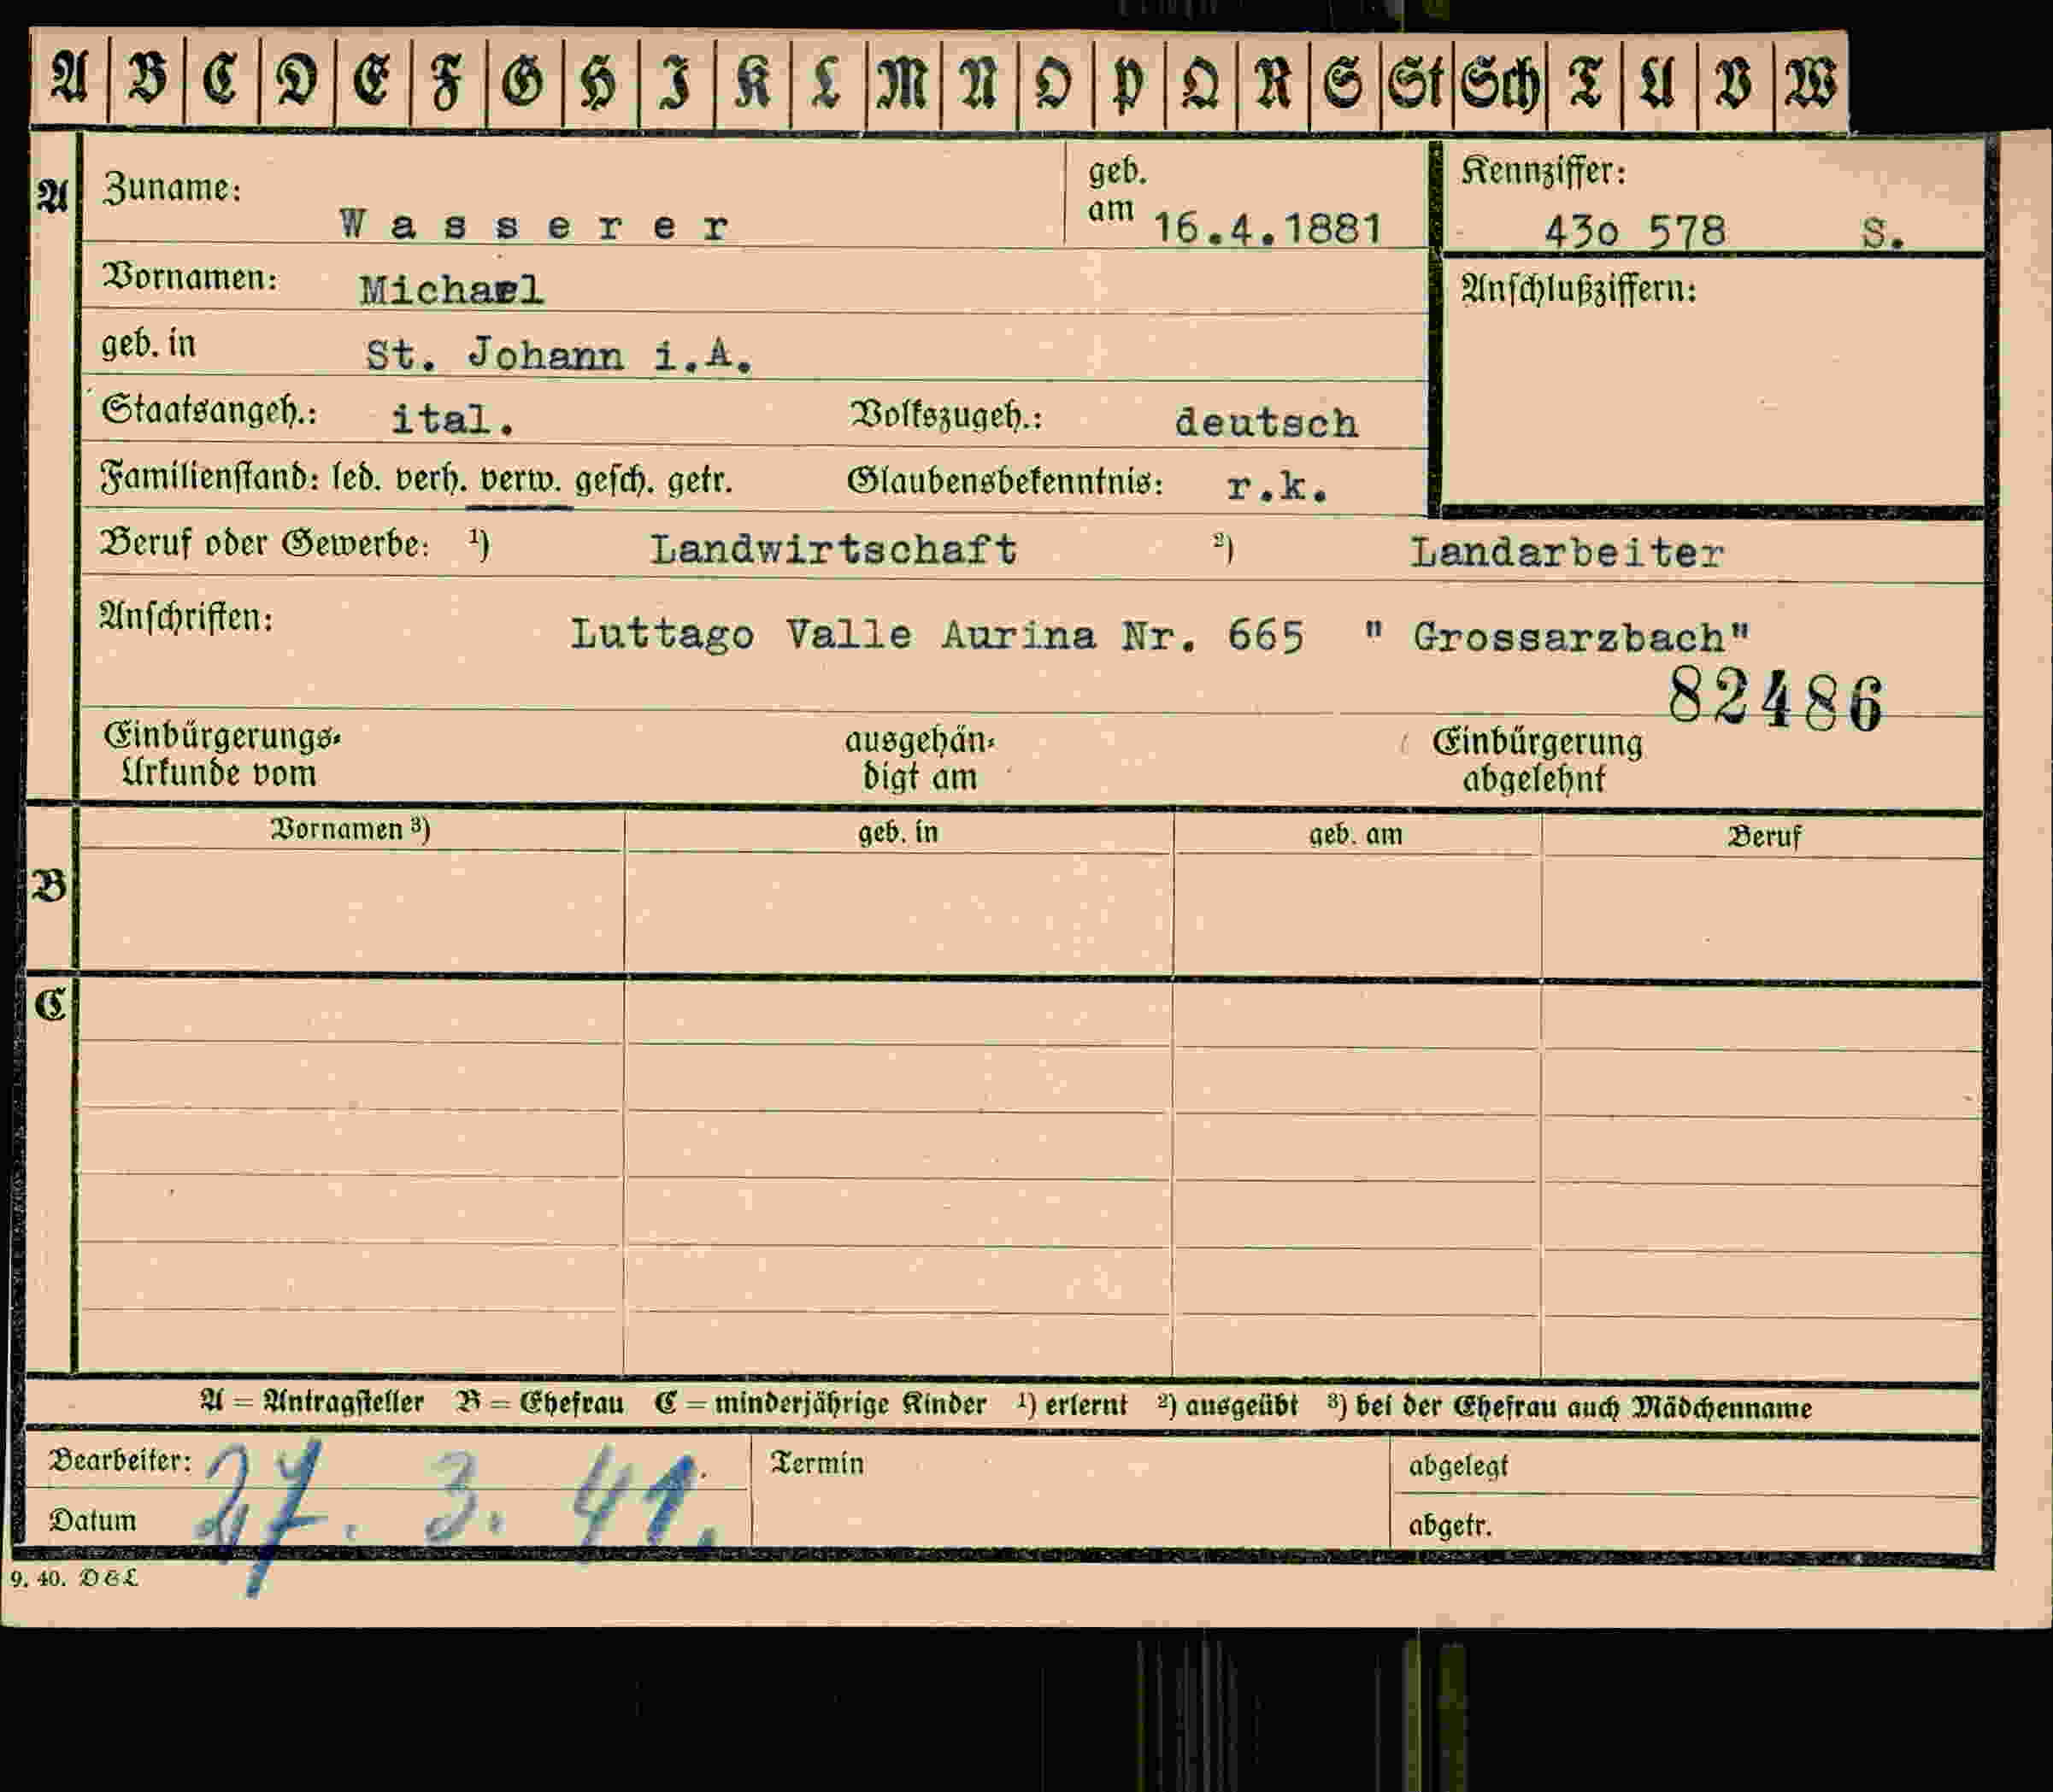 A B C D E F G H I K L M N O P Q R S St Sch T U V W
A Zuname: Wasserer geb. am 16.4.1881 Kennziffer: 43o 578 S.
Vornamen: Michael Anschlußziffern:
geb. in St. Johann i.A.
Staatsangeh.: ital. Volkszugeh.: deutsch
Familienstand: led. verh. verw. gesch. getr. Glaubensbekenntnis: r.k.
Beruf oder Gewerbe: ¹) Landwirtschaft ²) Landarbeiter
Anschriften: Luttago Valle Aurina Nr. 665 " Grossarzbach"
82486
Einbürgerungs- ausgehän- Einbürgerung
Urkunde vom digt am abgelehnt
Vornamen ³) geb. in geb. am Beruf
B
C
A = Antragsteller B = Ehefrau C = minderjährige Kinder ¹) erlernt ²) ausgeübt ³) bei der Ehefrau auch Mädchenname
Bearbeiter: 27. 3. 41. Termin abgelegt
Datum abgetr.
9. 40. D&L